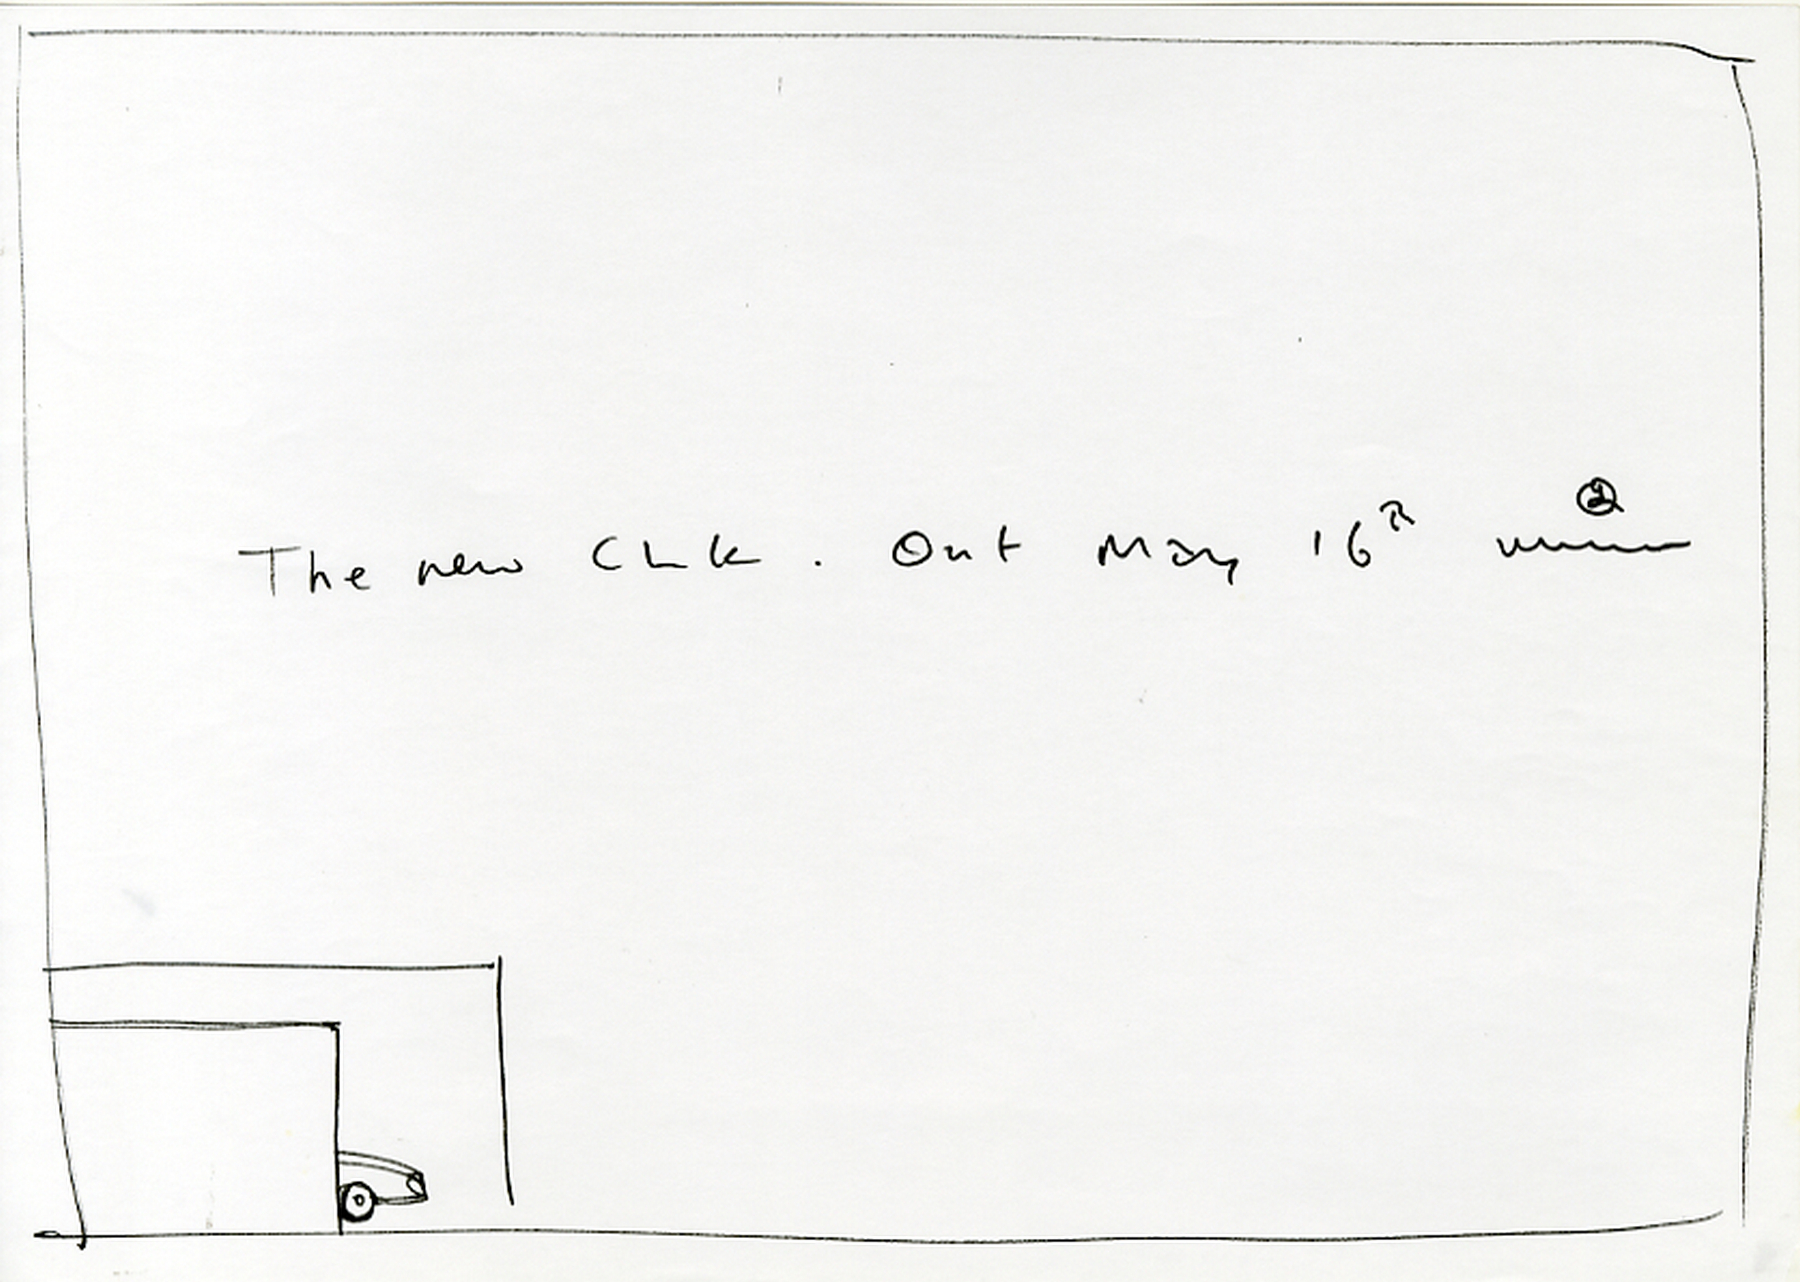 The new CLK. Out May 16th